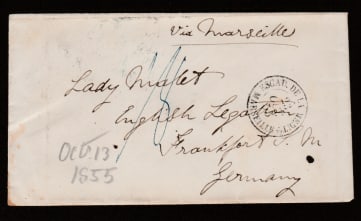 via Marseille
Lady Malet
English Legation
Frankfort S. M
Germany
Oct. 13
1855
ESCAD. DE LA